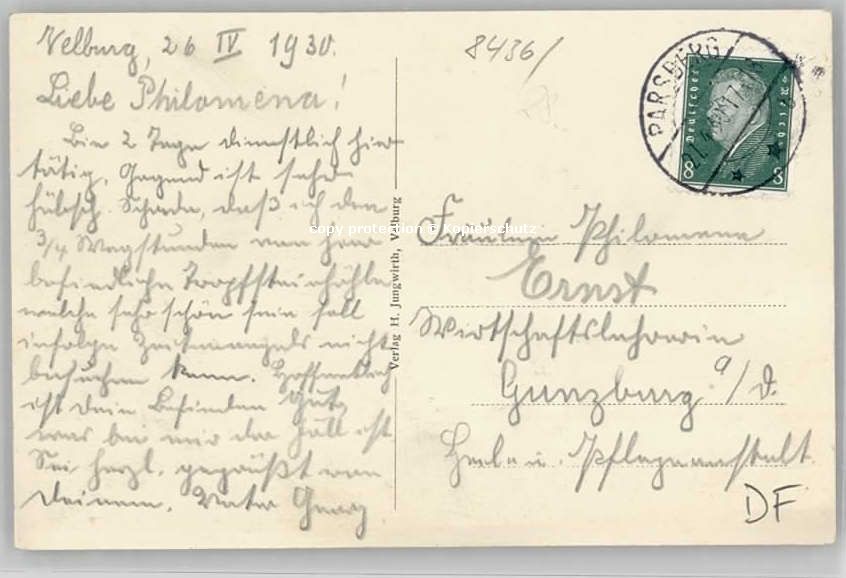 Velburg, 26 IV 1930.
Liebe Philomena!
Bin 2 Tage dienstlich hier
tätig, Gegend ist sehr
hübsch. Schade, daß ich den
3/4 Wegstunden von hier
befindliche Tropfsteinhöhle
welche sehr schön sein soll
infolge Zeitmangels nicht
besuchen kann. Hoffentlich
ist Dein Befinden gut,
was bei mir der Fall ist.
Sei herzl. gegrüßt von
Deinem Vater Georg
Verlag H. Jungwirth, Velburg
8436/
PARSBERG
Deutsches Reich
8 8
Fräulein Philomena
Ernst
Wirtschaftslehrerin
Günzburg a/D.
Heil- u. Pflegeanstalt
DF
copy protection © Kopierschutz